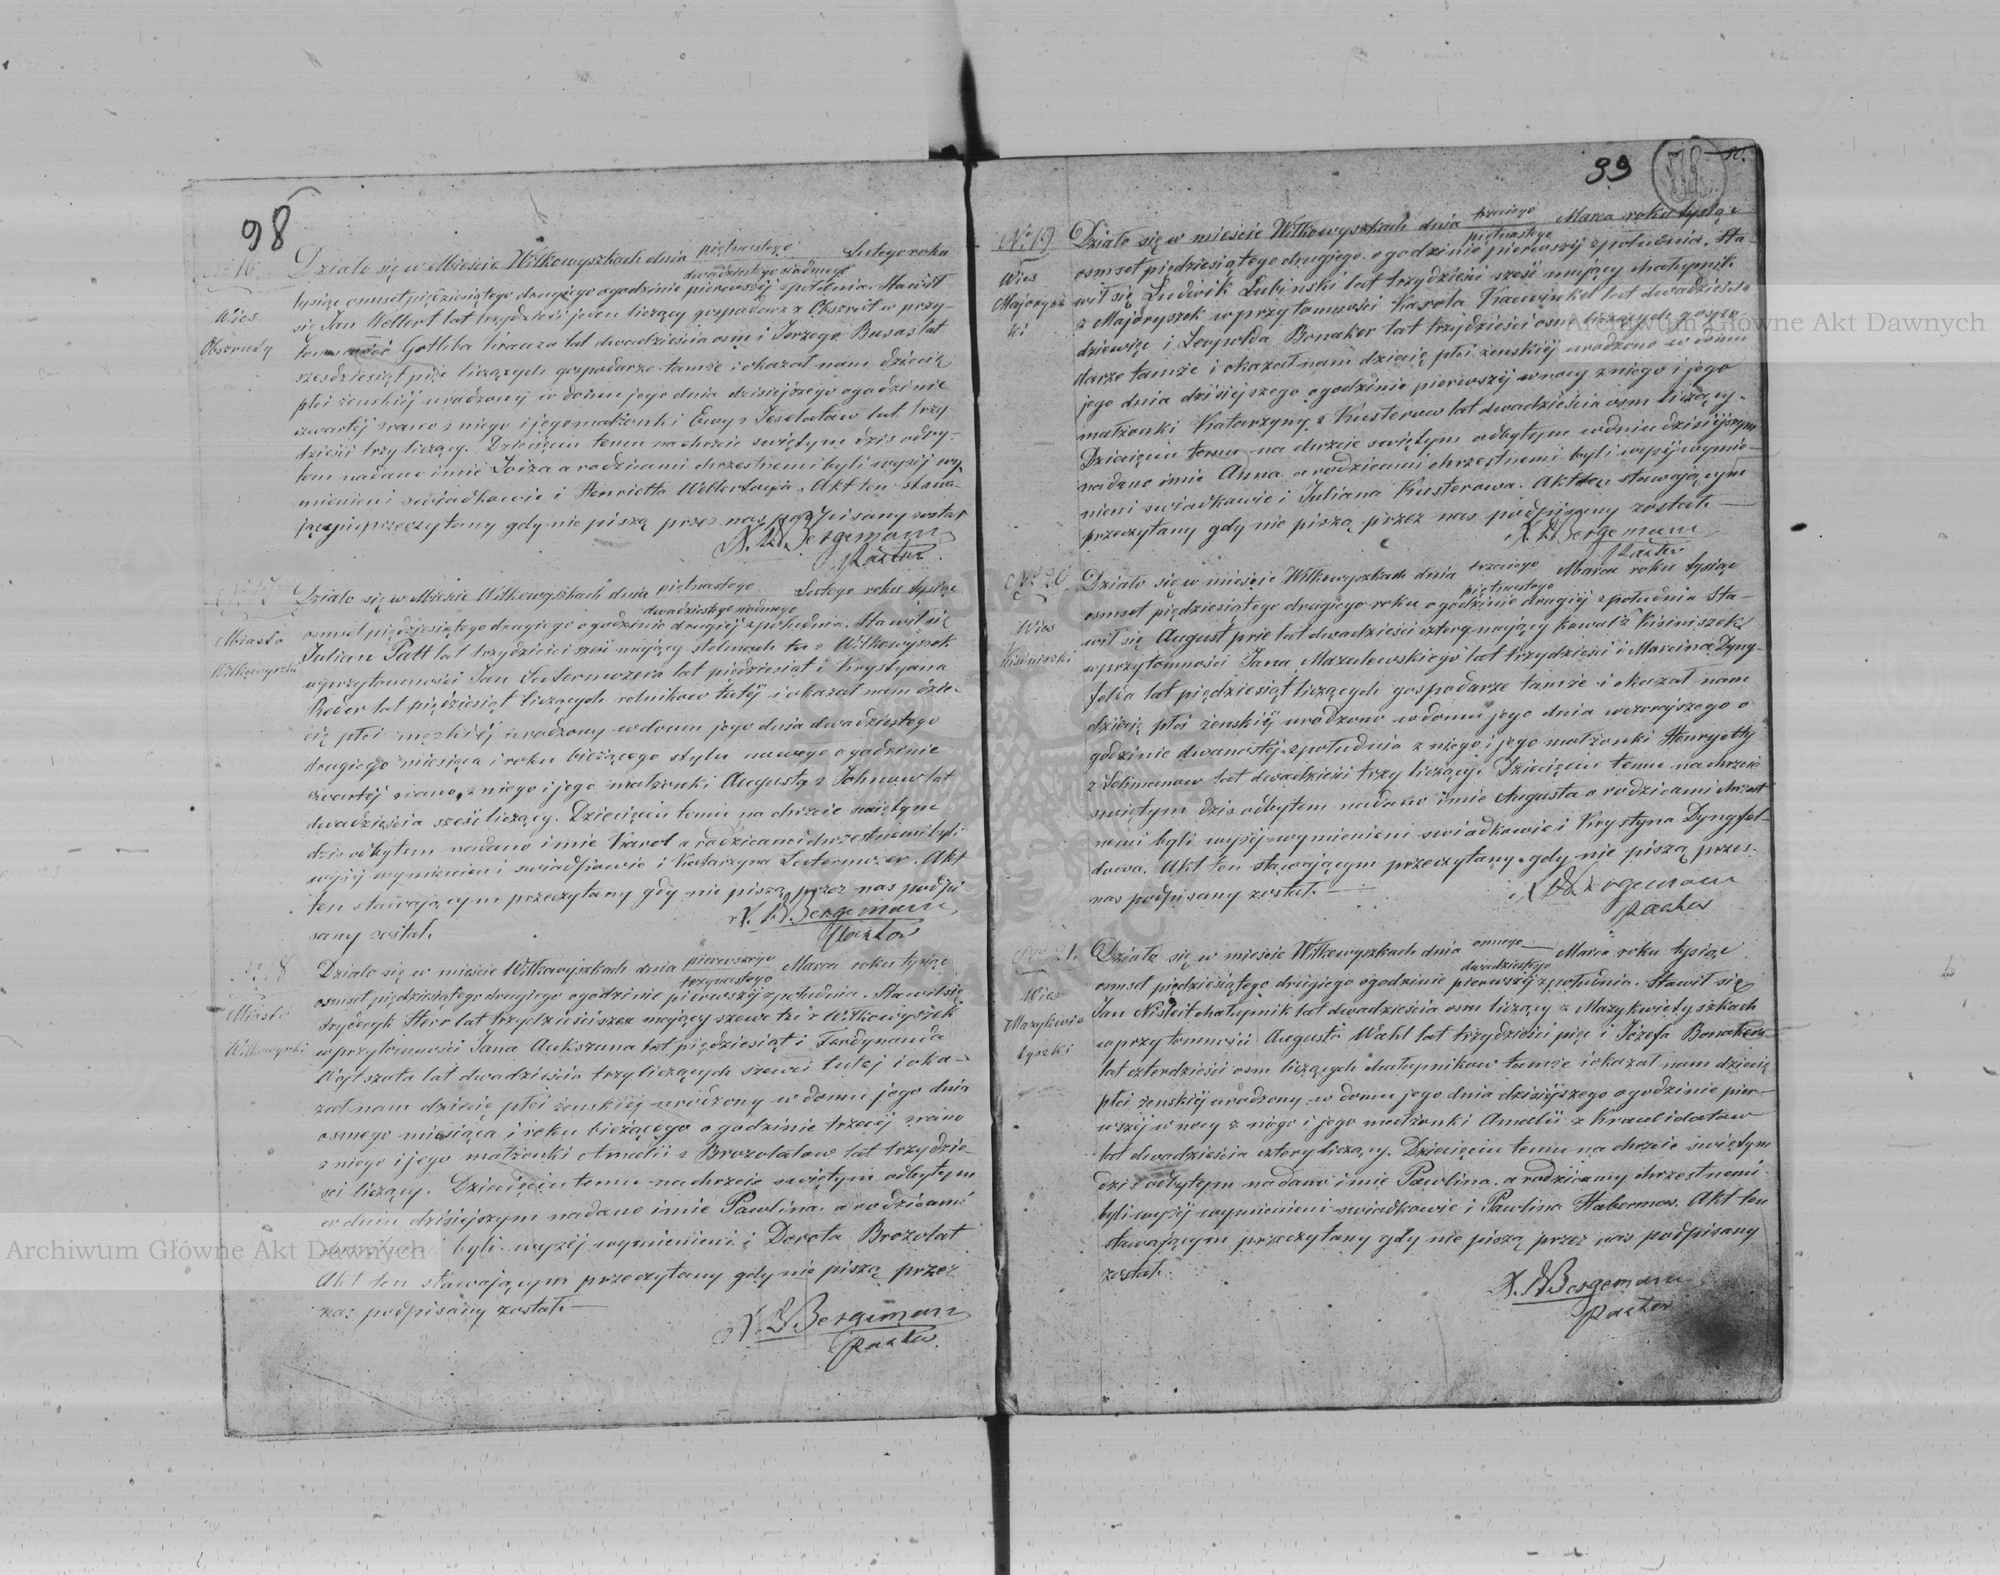 98
No 16
Wies
Obszruty
Działo się w Mieście Wiłkowyszkach dnia piętnastego Lutego roku
dwudziestego siódmego
tysiąc osmset piędziesiątego drugiego o godzinie pierwszej z południa. Stawił
się Jan Wellert lat trzydzieści jeden liczący gospodarz z Obszrut w przy-
tomności Gottliba Krauza lat dwadzieścia osm i Jerzego Busas lat
sześdziesiąt pięć liczących gospodarze tamże i okazał nam dziecię
płci żenskiej urodzony w domu jego dnia dzisiejszego o godzinie
czwartej zrana z niego i jego małżonki Ewy z lat trzy
dzieści trzy liczącej. Dziecięciu temu na chrzcie świętym dziś odby-
tem nadano imie Loiza a rodzicami chrzestnemi byli wyżej wy
mienieni swiadkowie i Henrietta Wellertowa. Akt ten stawa-
jącym przeczytany gdy nie piszą przez nas podpisany został
X. W. Bergemann
Pastor
No 17
Miasto
Wiłkowyszki
Działo się w Mieście Wiłkowyszkach dnia piętnastego Lutego roku tysiąc
dwudziestego siódmego
osmset piędziesiątego drugiego o godzinie drugiej z południa. Stawił się
Julian Patt lat trzydzieści sześć mający stelmach tu z Wiłkowyszek
w przytomności Jan lat piędziesiąt i Krystyana
Reder lat piędziesiąt liczących rolnikow tutej i okazał nam dzie-
cię płci męzkiej urodzony w domu jego dnia dwudziestego
drugiego miesiąca i roku bieżącego stylu nowego o godzinie
czwartej zrana, z niego i jego małżonki Augusty z Johnow lat
dwadzieścia sześć liczącej. Dziecięciu temu na chrzcie świętym
dzis odbytem nadano imie Karol a rodzicami chrzestnemi byli
wyżej wymienieni swiadkowie i Katarzyna Akt
ten stawającym przeczytany gdy nie piszą przez nas podpi
sany został.
X. W. Bergemann
Pastor
No 18
Miasto
Wiłkowyszki
Działo się w mieście Wiłkowyszkach dnia pierwszego Marca roku tysiąc
trzynastego
osmset piędziesiątego drugiego o godzinie pierwszej z południa. Stawił się
Fryderyk Stero lat trzydzieści szesc mający szewc tu z Wiłkowyszek
w przytomności Jana Aukszuna lat piędziesiąt i Ferdynanda
Wojtszata lat dwadzieścia trzy liczących szewci tutej i oka-
zał nam dziecię płci żenskiej urodzony w domu jego dnia
osmego miesiąca i roku bieżącego o godzinie trzeciej zrana
z niego i jego małżonki Amalii z Brozolatow lat trzydzie-
sci liczącej. Dziecięciu temu na chrzcie świętym odbytym
w dniu dzisiejszym nadano imie Pawlina. a rodzicami
byli wyżej wymienieni i Dorota Brozolat
Akt ten stawającym przeczytany gdy nie piszą przez
nas podpisany został.
X. W. Bergemann
Pastor
99
No 19
Wies
Majorysz
ki
Działo się w mieście Wiłkowyszkach dnia trzeciego Marca roku tysiąc
piętnastego
osmset piędziesiątego drugiego o godzinie pierwszej z południa. Sta-
wił się Ludwik Lubinski lat trzydzieści sześć mający chałupnik
z Majoryszek w przytomności Karola lat dwadzieścia
dziewięć i Leopolda Bonaker lat trzydzieści osm liczących gospo
darze tamże i okazał nam dziecię płci żenskiej urodzone w domu
jego dnia dzisiejszego o godzinie pierwszej w nocy z niego i jego
małżonki Katarzyny z Kusterow lat dwadzieścia osm liczącej.
Dziecięciu temu na chrzcie świętym odbytym w dniu dzisiejszym
nadano imie Anna a rodzicami chrzestnemi byli wyżej wymie-
nieni swiadkowie i Juliana Kusterowa. Akt ten stawającym
przeczytany gdy nie piszą przez nas podpisany został.
X. W. Bergemann
Pastor
No 20
Wies
Kisiniszki
Działo się w mieście Wiłkowyszkach dnia trzeciego Marca roku tysiąc
piętnastego
osmset piędziesiątego drugiego roku o godzinie drugiej z południa Sta-
wił się August prie lat dwadzieści cztery mający kowal z Kisiniszek
w przytomności Jana Mazulewskiego lat trzydzieści i Marcina Dyng-
felda lat pięćdziesiąt liczących gospodarze tamże i okazał nam
dziecię płci żenskiej urodzono w domu jego dnia wczorajszego o
godzinie dwanastej z południa z niego i jego małżonki Henryetty
z lat dwadzieści trzy liczącej. Dziecięciu temu na chrzcie
świętym dzis odbytem nadano imie Augusta a rodzicami chrzest
nemi byli wyżej wymienieni swiadkowie i Krystyna Dyngfel-
dowa. Akt ten stawającym przeczytany gdy nie piszą przez
nas podpisany został.
X. W. Bergemann
Pastor
No 21.
Wies
Mazykwie
tyszki
Działo się w mieście Wiłkowyszkach dnia osmego Marca roku tysiąc
dwudziestego
osmset piędziesiątego drugiego o godzinie pierwszej z południa. Stawił się
Jan chałupnik lat dwadzieścia osm liczący z Mazykwietyszkach
w przytomności Augusta Wahl lat trzydzieści pięć i Józefa
lat czterdzieści osm liczących chałupnikow tamże i okazał nam dziecię
płci żenskiej urodzony w domu jego dnia dzisiejszego o godzinie pier-
wszej w nocy z niego i jego małżonki Amelii z
lat dwadzieścia cztery liczącej. Dziecięciu temu na chrzcie świętym
dzis odbytym nadano imie Pawlina. a rodzicamy chrzestnemi
byli wyżej wymienieni swiadkowie i Pawlina Habermas. Akt ten
stawającym przeczytany gdy nie piszą przez nas podpisany
został.
X. W. Bergemann
Pastor
Archiwum Główne Akt Dawnych
Archiwum Główne Akt Dawnych